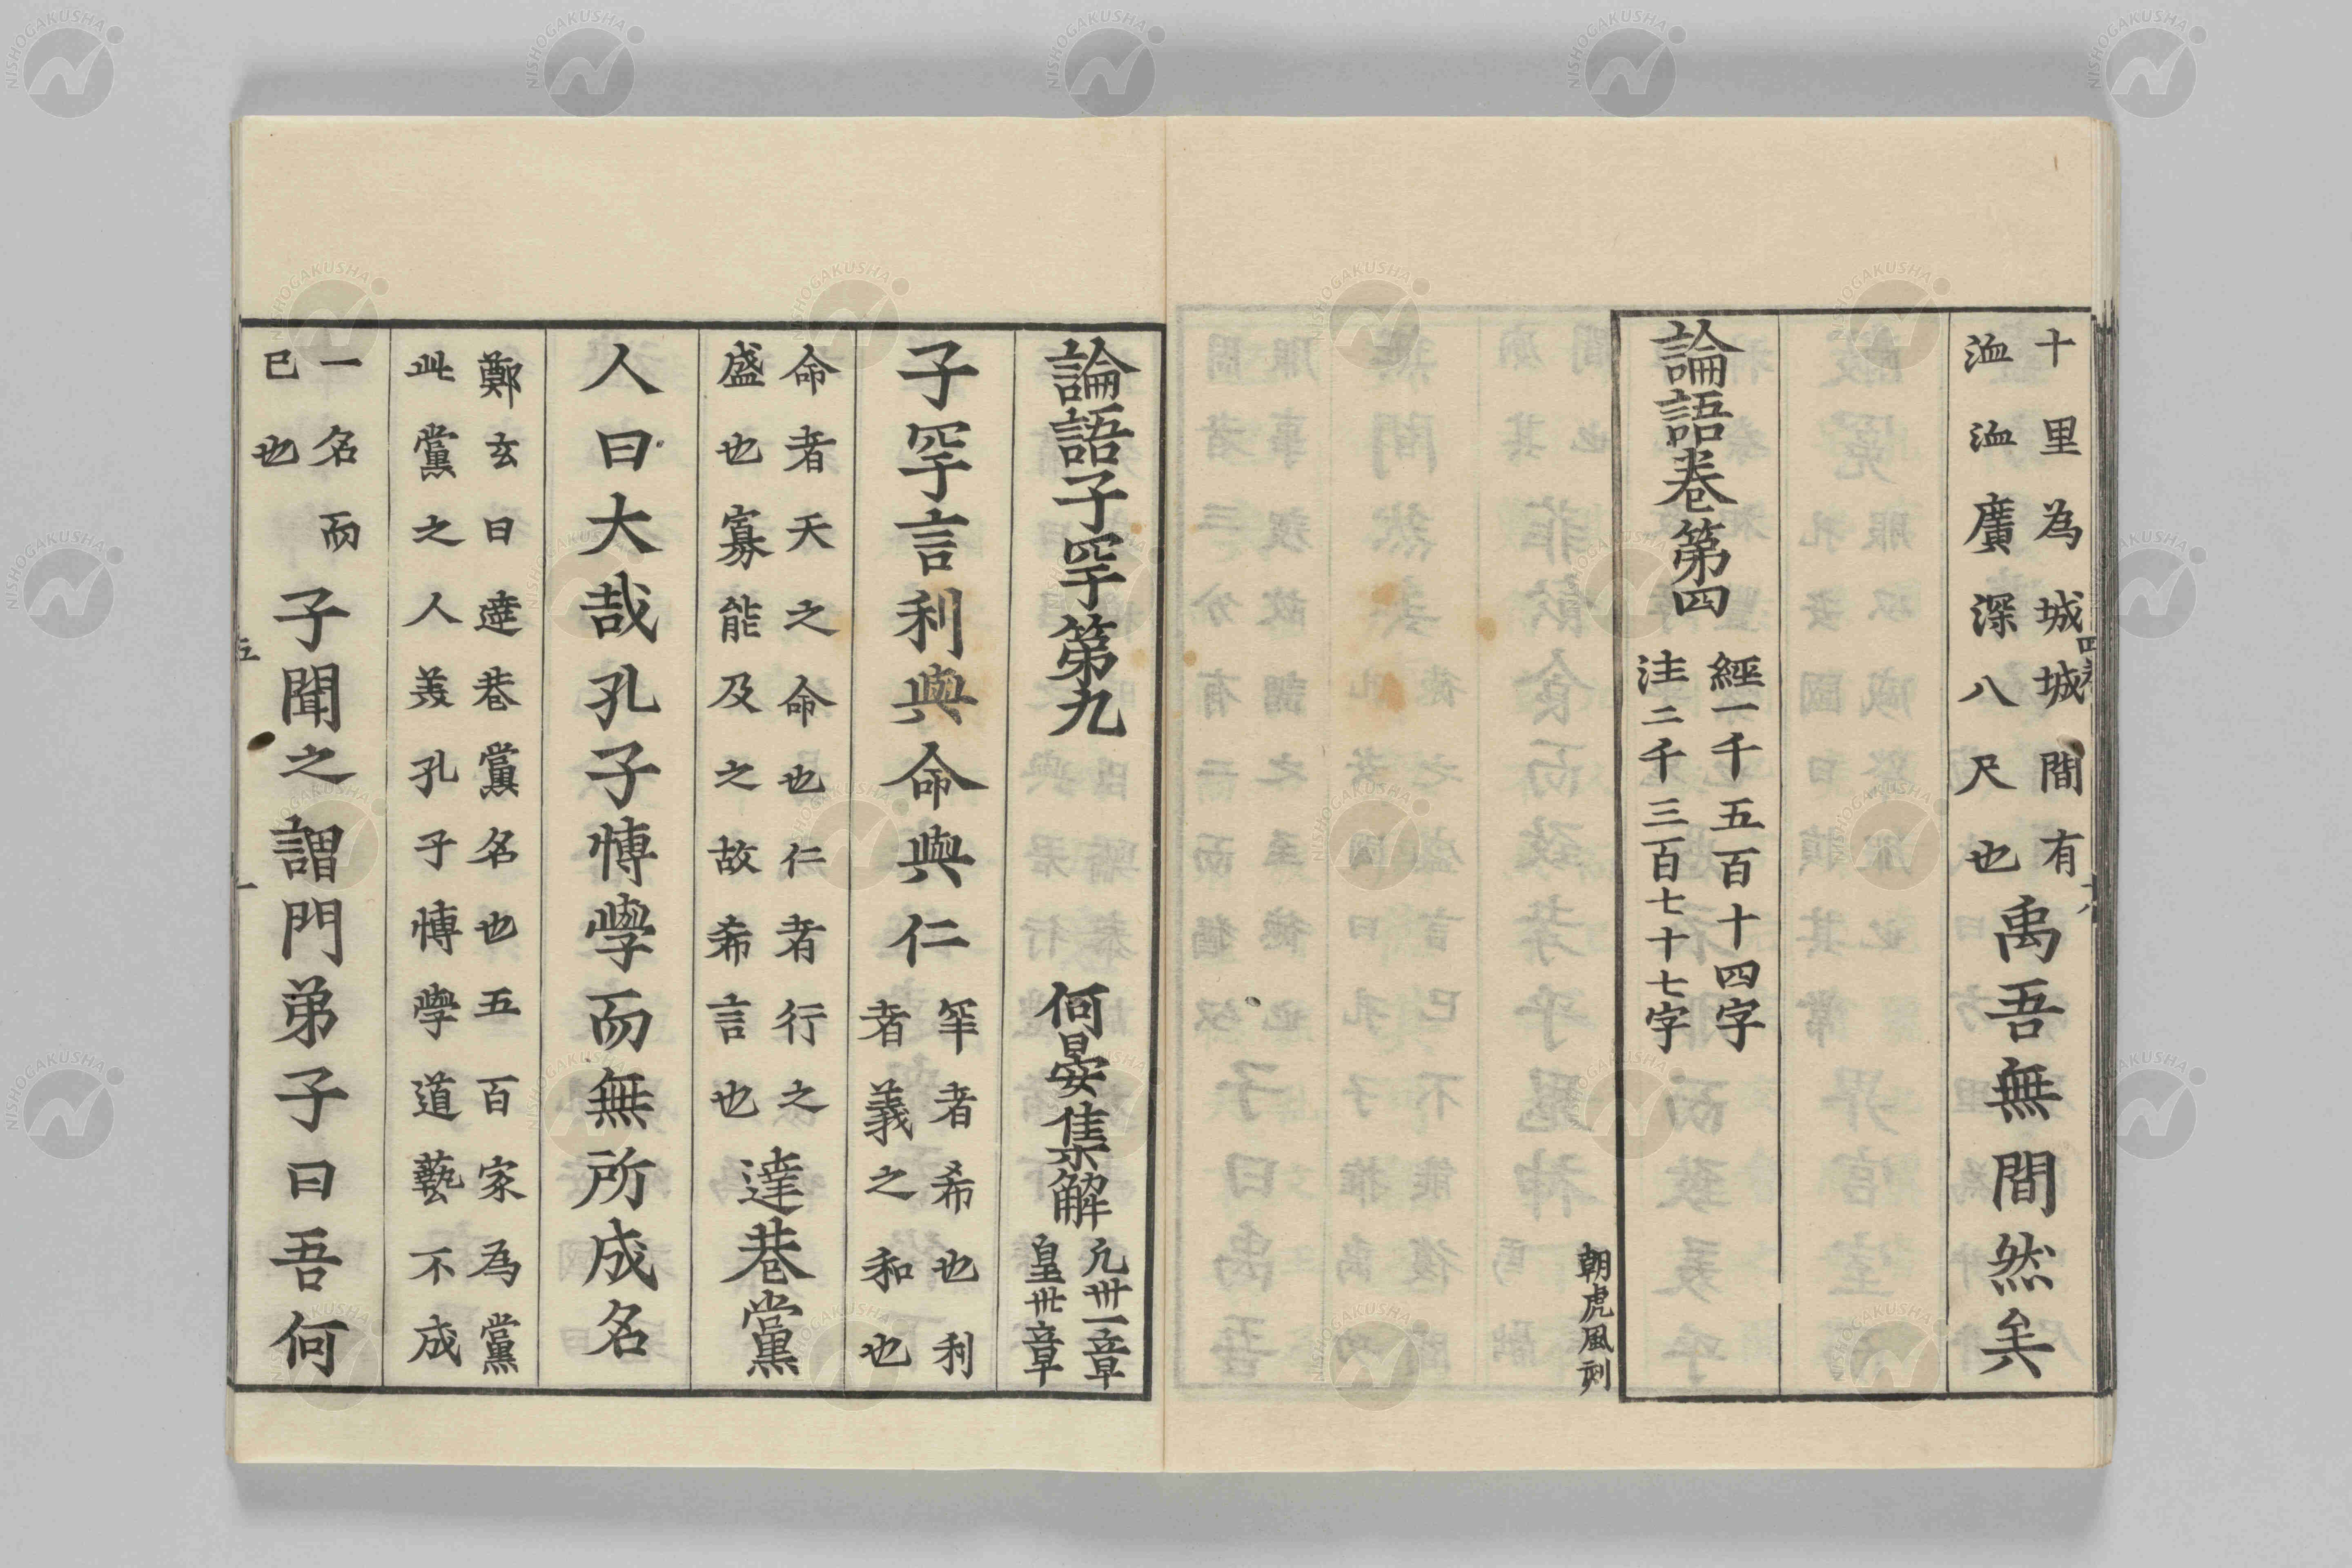 十里為城城間有
洫洫廣深八尺也
禹吾無間然矣
論語卷第四
經一千五百十四字
注二千三百七十七字
朝虎風刻
論語子罕第九 何晏集解
凡卅一章
皇卅章
子罕言利與命與仁
罕者希也利
者義之和也
命者天之命也仁者行之
盛也寡能及之故希言也
達巷黨
人曰大哉孔子博學而無所成名
鄭玄曰達巷黨名也五百家為黨
此黨之人美孔子博學道藝不成
一名而
已也
子聞之謂門弟子曰吾何
NISHOGAKUSHA